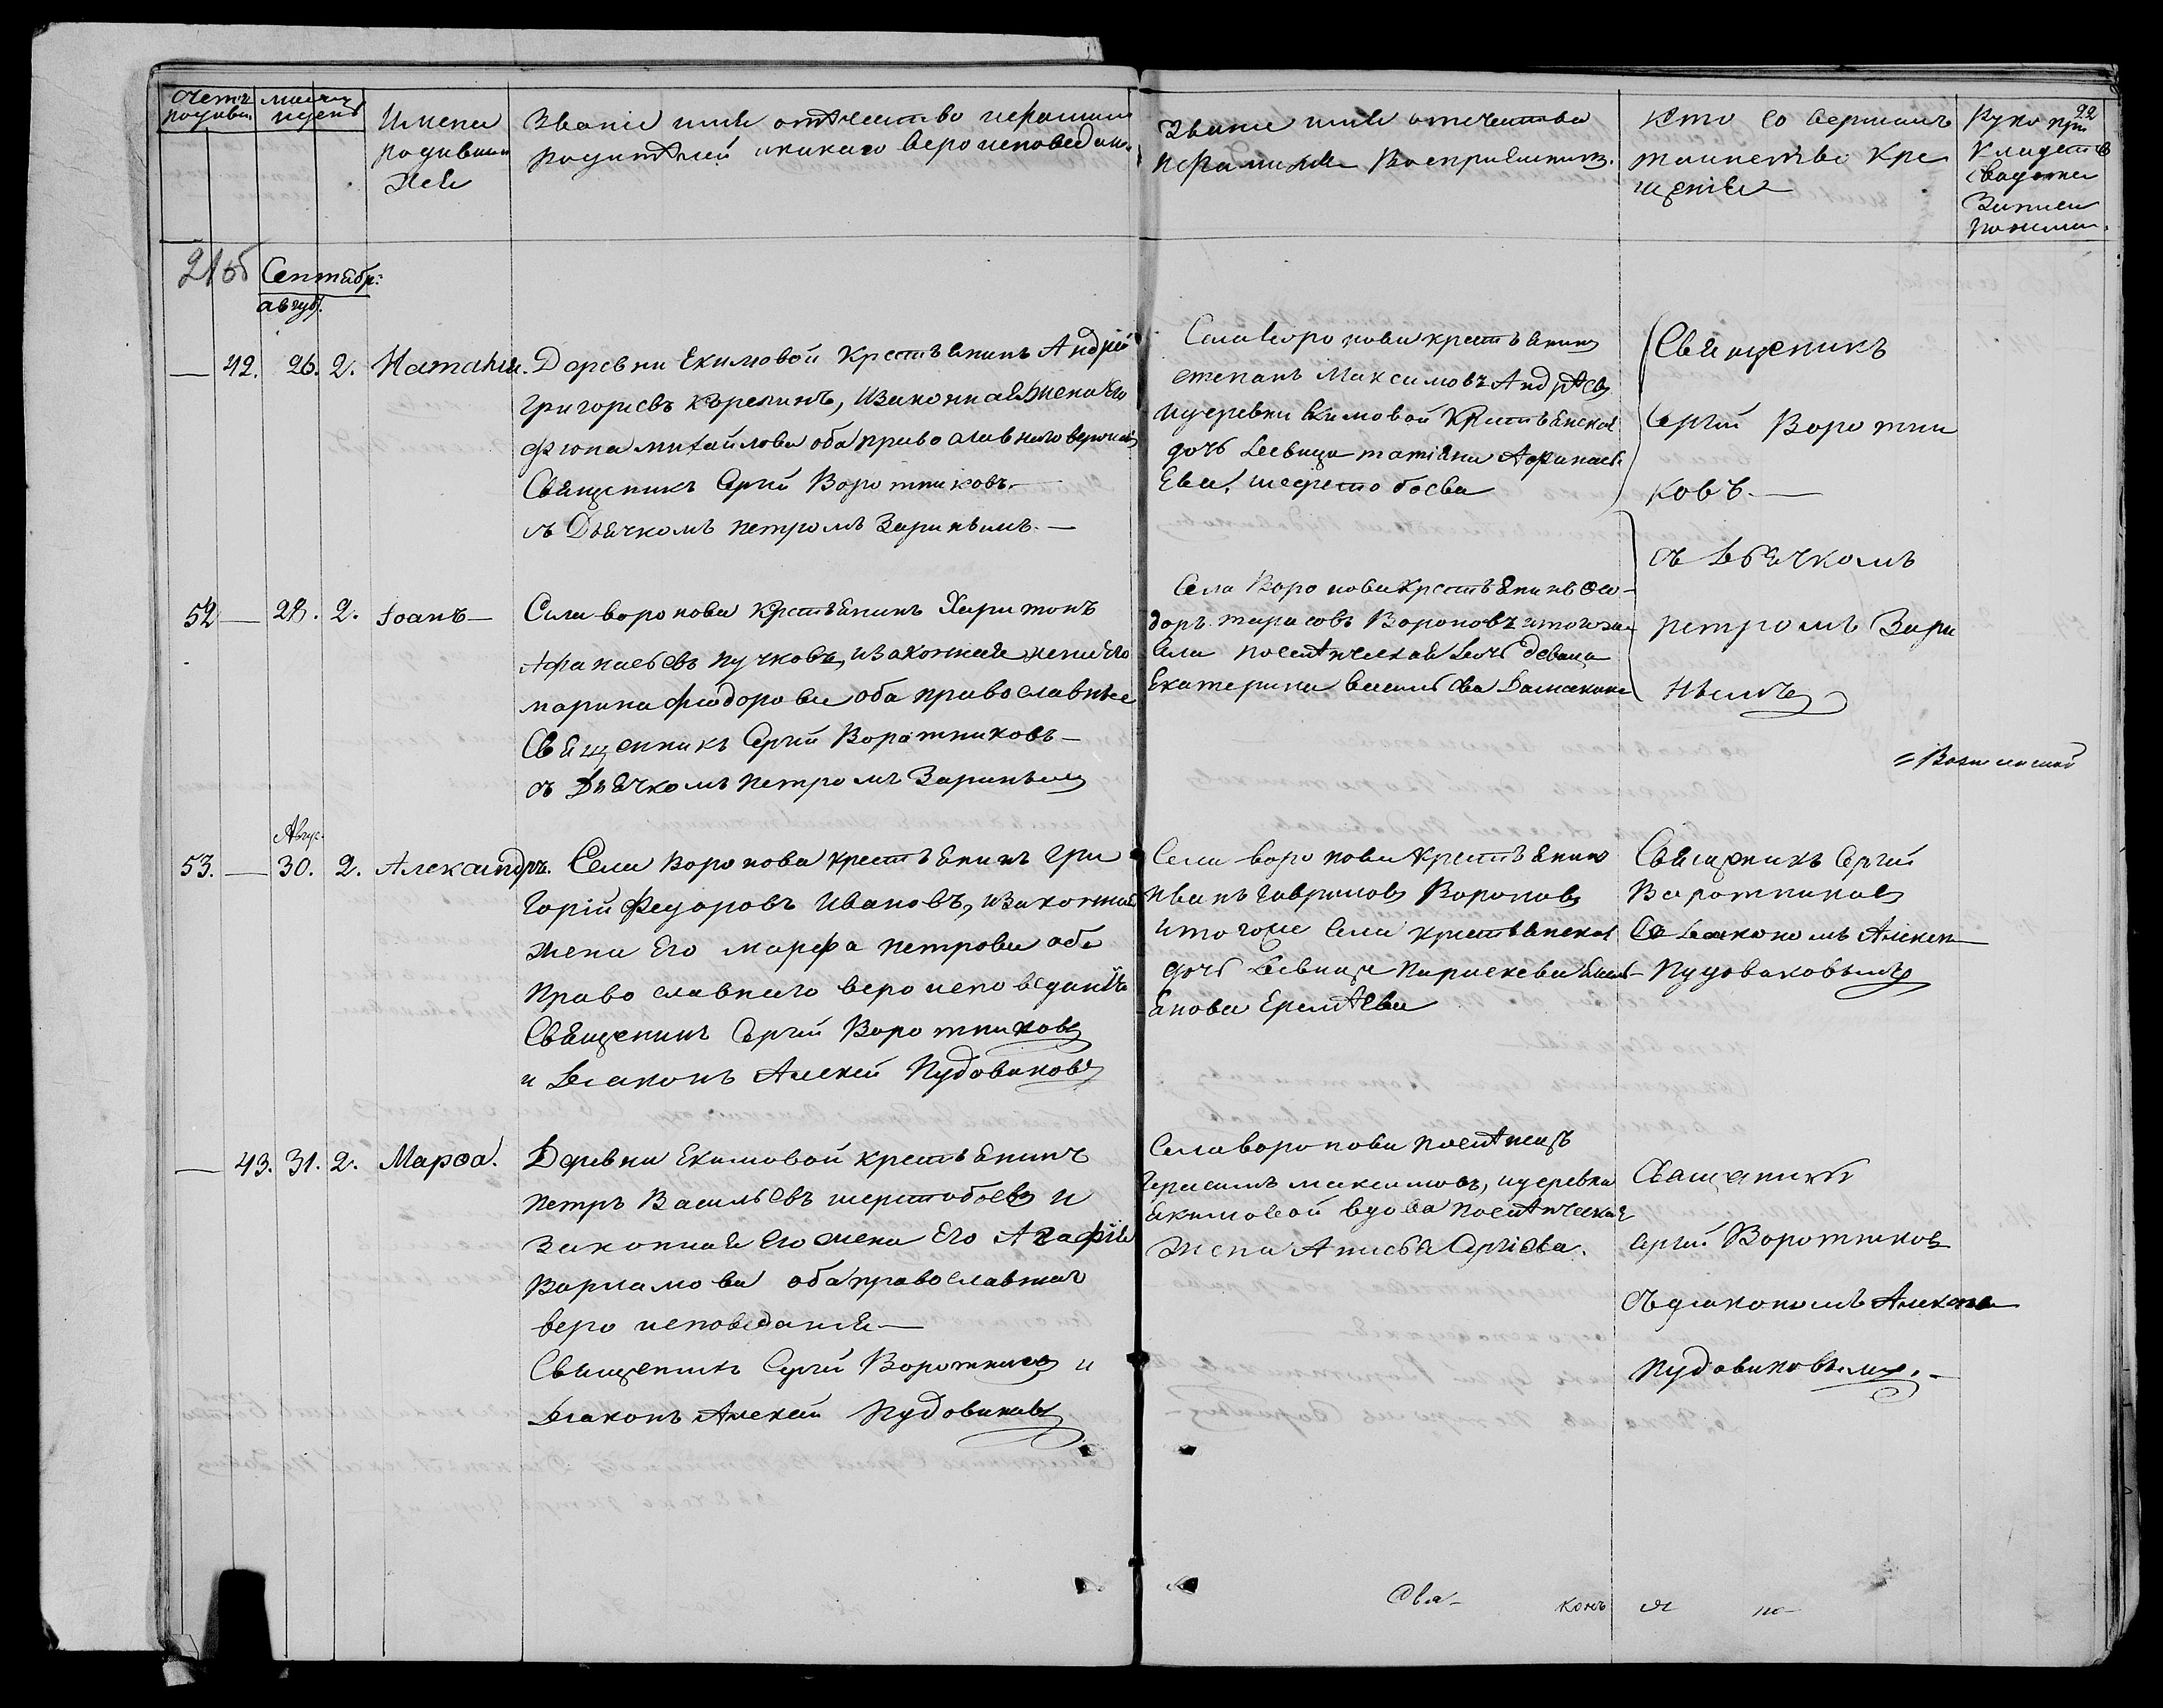 Счетъ родивш.
месяцъ и день
Имена
родивши
хся
Званіе имя отчество и фамилія
родителей и какаго вероисповедан.
Званіе имя отечество
и фамилія Восприемник.
Кто совершалъ
таинство Кре
щенія
22
Руко при
кладств
свадетел
Записи
по желан.
21 об
Сентябр:
август.
— 42. 26. 2. Наталія.
Деревни Екимовой Крестьянинъ Андрей
Григорьевъ Кърепинъ, и законная жена Его
Фіона Михайлова оба православнаго вероисп
Священикъ Сергій Воротниковъ.—
съ Дьячкомъ Петромъ Заринымъ.—
Села Воронова крестьянинъ
степанъ Максимовъ Андреевъ
и деревни Екимовой Крестьянская
дочь Девица татіяна Афанась
Ева, шерстобоева
Священикъ
Сергій Воротни
ковъ.—
съ Дьячкомъ
петромъ Зари
нымъ
52 — 28. 2. Іоанъ—
Села воронова Крестьянинъ Харитонъ
Афанасьевъ Пучковъ, и законная жена Его
марина Фіодорова оба православные
Священникъ Сергій Воротниковъ—
съ Дьячкомъ Петромъ Зариным
Села Воронова Крестьянинъ Фео-
доръ тарасовъ Вороновъ и тогоже
Села поселнческая Дочь девица
Екатерина васильева
Авгус.
53. — 30. 2. Александръ.
Села Воронова крестьянинъ Гри
горій Федоровъ Ивановъ, и законная
жена Его Марфа Петрова оба
Православнаго вероисповеданія
Священикъ Сергій Воротниковъ
и Діаконъ Алексей Пудовиковъ
Села воронова Крестьянин
Иванъ Гаврилов Воронов
и тогоже села крестьянская
дочь Девица Параскева
Еремѣева
Священикъ Сергій
Воротников
Со Диакономъ Алексе
Пудовиковымъ
— 43. 31. 2. Марѳа.
Деревни Екимовой крестьянинъ
Петръ Васильевъ шерстобоевъ и
законная его жена Его Агафія
Варламова оба православнаго
вероисповеданія—
Священикъ Сергій Воротников и
Діаконъ Алексей Пудовиковъ
Села воронова поселнецъ
Герасимъ максимовъ, и деревни
Екимовой вдова поселнческая
Жена Анисья Сергіева.
Священикъ
Сергій Воротников
съ диакономъ Алексе
Пудовиковымъ.—
Свя-
конъ